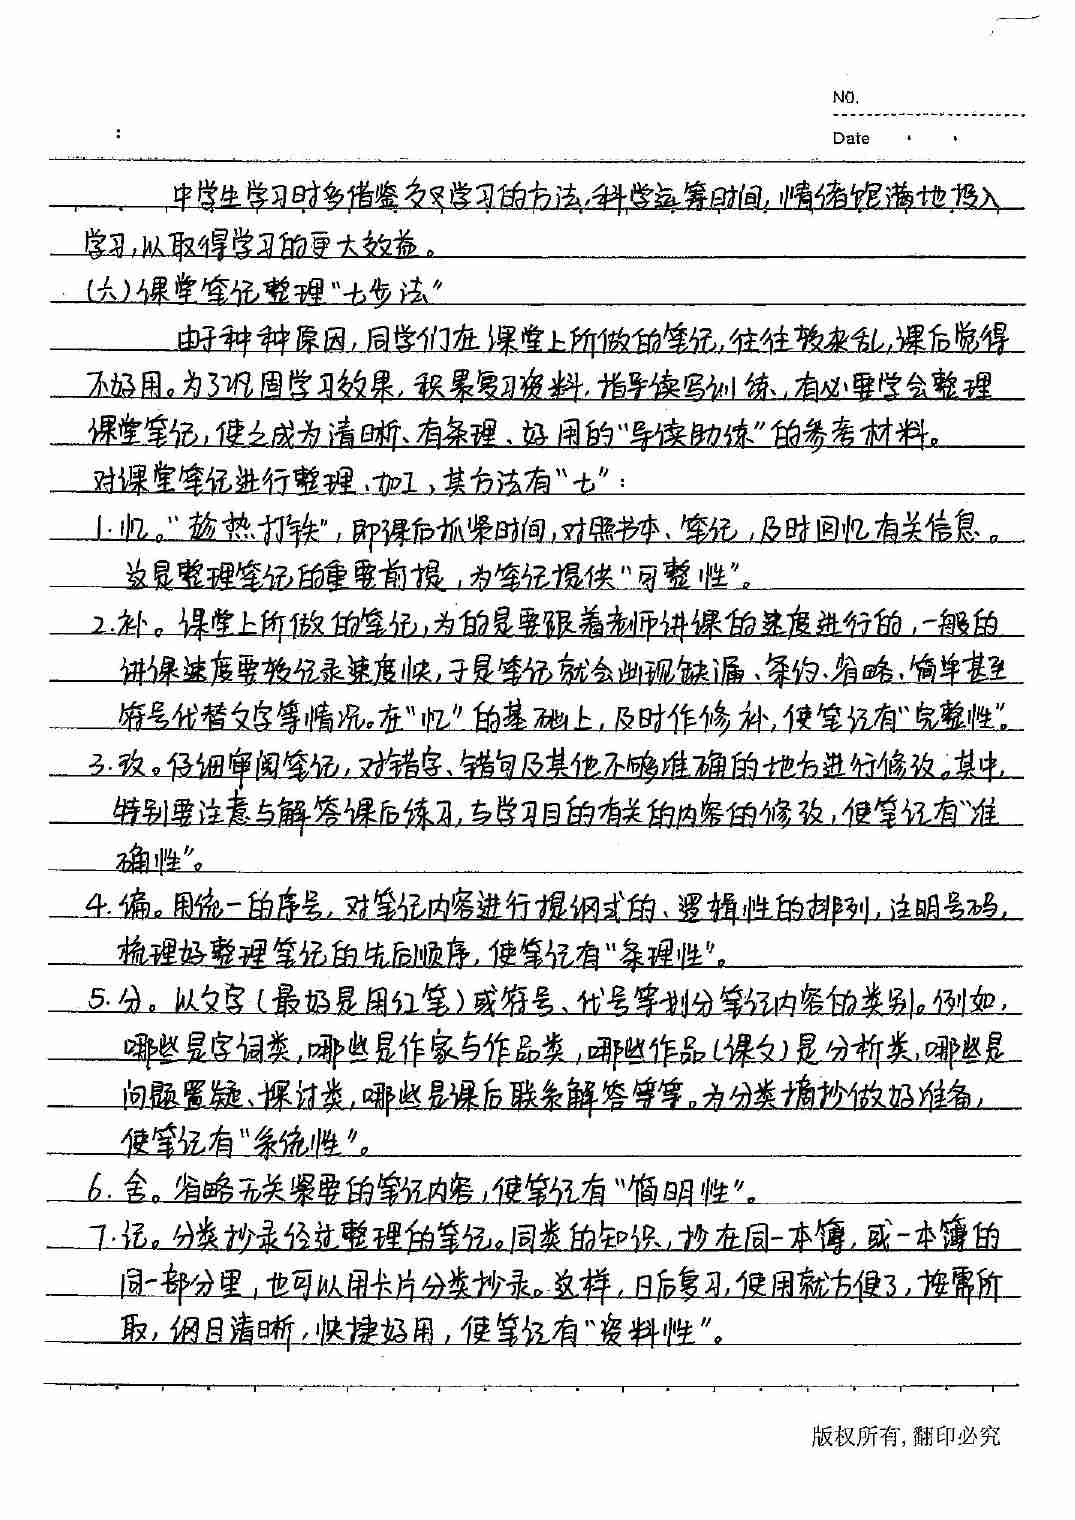 NO.
:
Date
中学生学习时多借鉴交叉学习的方法,科学运筹时间,情绪饱满地投入
学习,以取得学习的更大效益。
(六)课堂笔记整理“七步法”
由于种种原因,同学们在课堂上所做的笔记,往往较杂乱,课后觉得
不好用。为了巩固学习效果,积累复习资料,指导读写训练,有必要学会整理
课堂笔记,使之成为清晰、有条理、好用的“导读助练”的参考材料。
对课堂笔记进行整理、加工,其方法有“七”:
1.忆。“趁热打铁”,即课后抓紧时间,对照书本、笔记,及时回忆有关信息。
这是整理笔记的重要前提,为笔记提供“可整性”。
2.补。课堂上所做的笔记,为的是要跟着老师讲课的速度进行的,一般的
讲课速度要较记录速度快,于是笔记就会出现缺漏、条约、省略、简单甚至
符号代替文字等情况。在“忆”的基础上,及时作修补,使笔记有“完整性”。
3.改。仔细审阅笔记,对错字、错句及其他不够准确的地方进行修改。其中,
特别要注意与解答课后练习,与学习目的有关的内容的修改,使笔记有“准
确性”。
4.编。用统一的序号,对笔记内容进行提纲式的、逻辑性的排列,注明号码,
梳理好整理笔记的先后顺序,使笔记有“条理性”。
5.分。以文字(最好是用红笔)或符号、代号等划分笔记内容的类别。例如,
哪些是字词类,哪些是作家与作品类,哪些作品(课文)是分析类,哪些是
问题置疑、探讨类,哪些是课后联系解答等等。为分类摘抄做好准备,
使笔记有“系统性”。
6.舍。省略无关紧要的笔记内容,使笔记有“简明性”。
7.记。分类抄录经过整理的笔记。同类的知识,抄在同一本簿,或一本簿的
同一部分里,也可以用卡片分类抄录。这样,日后复习,使用就方便了,按需所
取,纲目清晰,快捷好用,使笔记有“资料性”。
版权所有,翻印必究